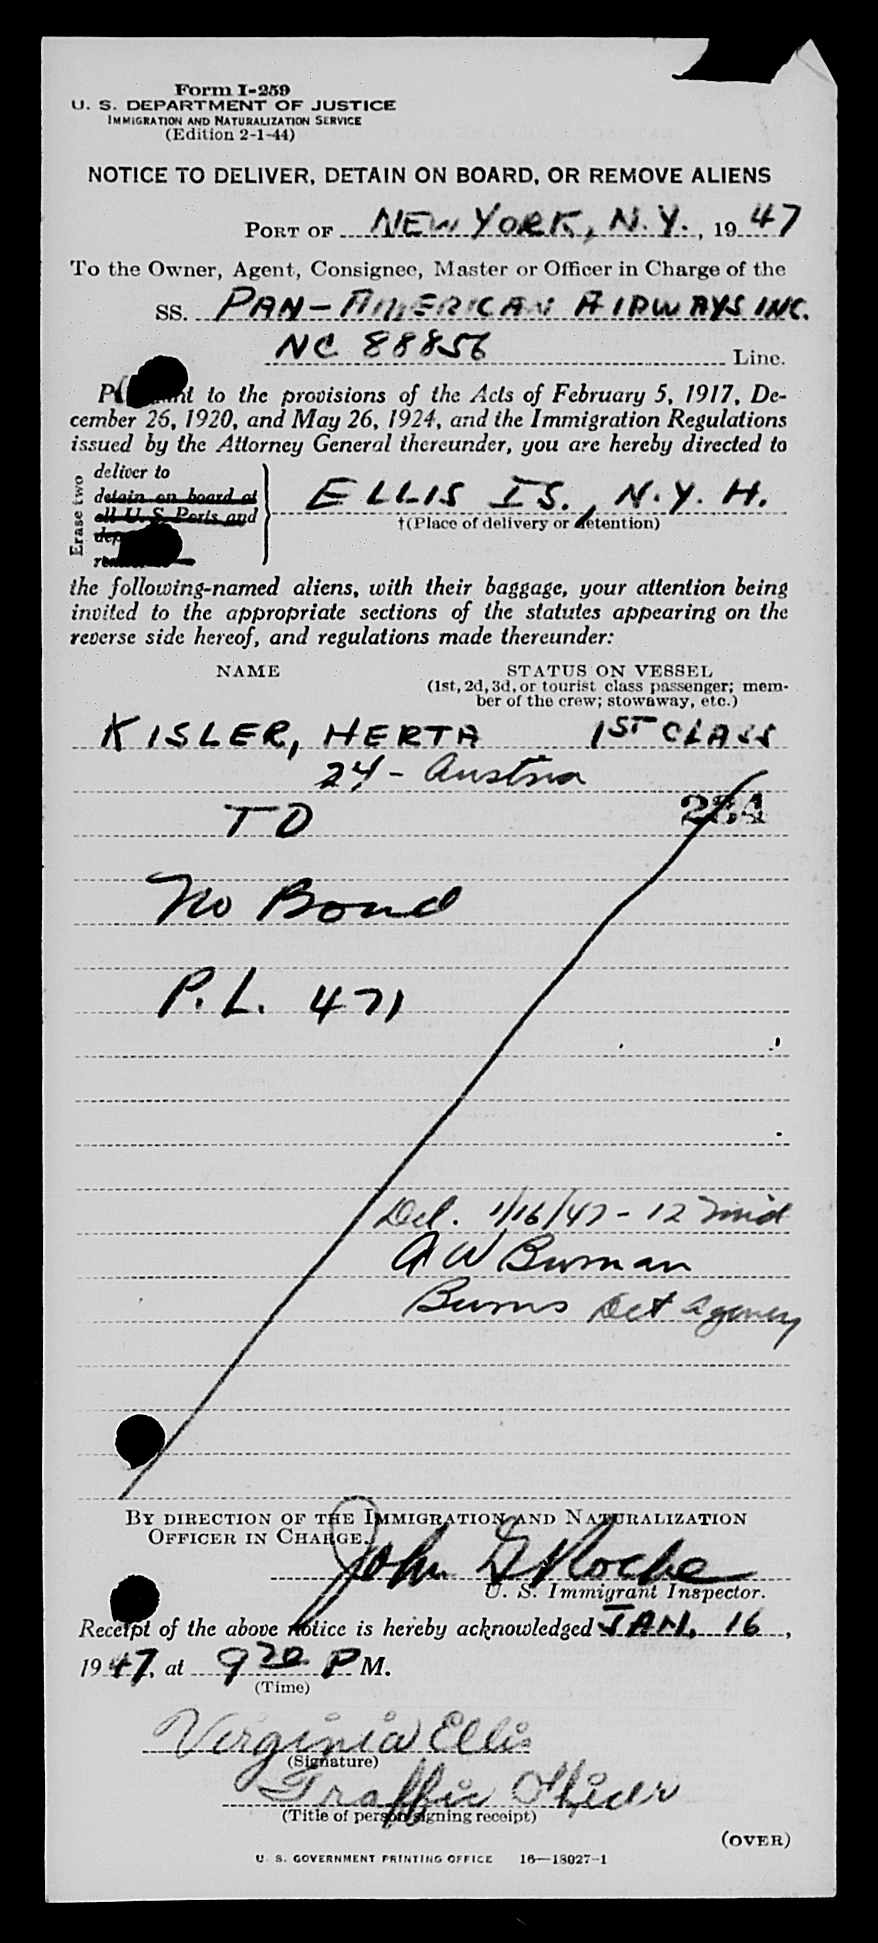 Form I-259
U. S. DEPARTMENT OF JUSTICE
IMMIGRATION AND NATURALIZATION SERVICE
(Edition 2-1-44)
NOTICE TO DELIVER, DETAIN ON BOARD, OR REMOVE ALIENS
PORT OF NEW YORK, N.Y., 1947
To the Owner, Agent, Consignee, Master or Officer in Charge of the
SS. PAN-AMERICAN AIRWAYS INC.
NC 88856 Line.
to the provisions of the Acts of February 5, 1917, De-
cember 26, 1920, and May 26, 1924, and the Immigration Regulations
issued by the Attorney General thereunder, you are hereby directed to
Erase two
deliver to
detain on board at
all U. S. Ports and
ELLIS IS., N.Y.H.
†(Place of delivery or detention)
the following-named aliens, with their baggage, your attention being
invited to the appropriate sections of the statutes appearing on the
reverse side hereof, and regulations made thereunder:
NAME STATUS ON VESSEL
(1st, 2d, 3d, or tourist class passenger; mem-
ber of the crew; stowaway, etc.)
KISLER, HERTA 1ST CLASS
24 - Austria
TD 234
No Bond
P.L. 471
Del. 1/16/47 - 12 mid
A W Burman
Burns Det Agency
BY DIRECTION OF THE IMMIGRATION AND NATURALIZATION
OFFICER IN CHARGE.
John G Roche
U. S. Immigrant Inspector.
Receipt of the above notice is hereby acknowledged JAN. 16,
1947, at 9 20 P M.
(Time)
Virginia Ellis
(Signature)
Traffic Officer
(Title of person signing receipt)
(OVER)
U. S. GOVERNMENT PRINTING OFFICE 16—18027-1